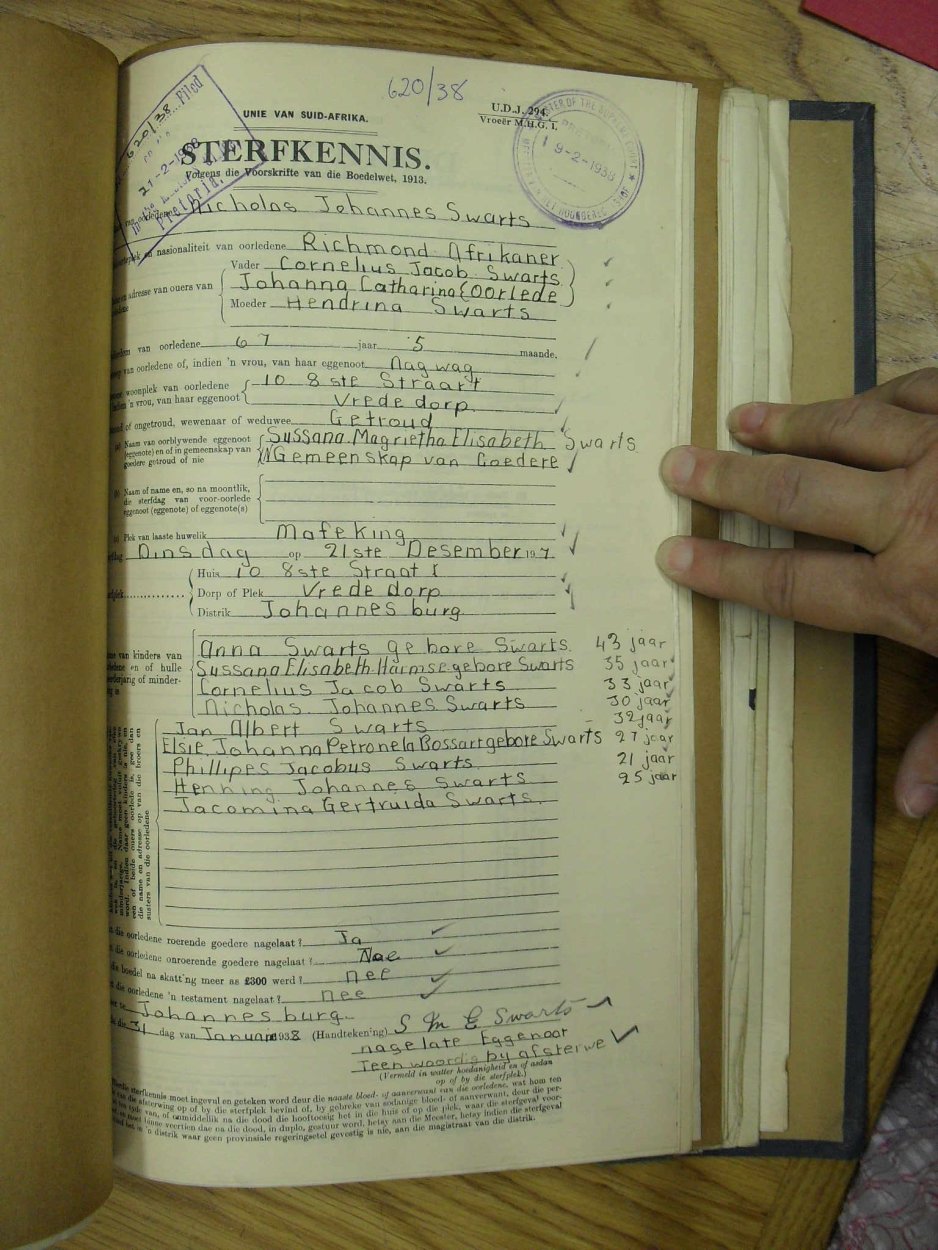 620/38
UNIE VAN SUID-AFRIKA.
U.D.J. 294.
Vroeër M.H.G. 1.
STERFKENNIS.
Volgens die Voorskrifte van die Boedelwet, 1913.
620/38 Filed
21-2-1938
Pretoria.
MASTER OF THE SUPREME COURT
19-2-1938
van oorledene Nicholas Johannes Swarts
en nasionaliteit van oorledene Richmond Afrikaner
Vader Cornelius Jacob Swarts
en adresse van ouers van Johanna Catharina (Oorlede)
Moeder Hendrina Swarts
van oorledene 67 jaar 5 maande.
van oorledene of, indien 'n vrou, van haar eggenoot Nagwag
woonplek van oorledene 10 8ste Straart
'n vrou, van haar eggenoot Vrededorp
of ongetroud, wewenaar of weduwee Getroud
Naam van oorblywende eggenoot Sussana Magrietha Elisabeth Swarts
(eggenote) en of in gemeenskap van
goedere getroud of nie In Gemeenskap van Goedere
Naam of name en, so na moontlik,
die sterfdag van voor-oorlede
eggenoot (eggenote) of eggenote(s)
Plek van laaste huwelik Mafeking
Dinsdag op 21ste Desember 1937
Huis 10 8ste Straat
Dorp of Plek Vrededorp
Distrik Johannesburg
van kinders van Anna Swarts gebore Swarts 43 jaar
en of hulle Sussana Elisabeth Harmse gebore Swarts 35 jaar
of minder- Cornelius Jacob Swarts 33 jaar
Nicholas Johannes Swarts 30 jaar
Jan Albert Swarts 32 jaar
Elsie Johanna Petronela Bossart gebore Swarts 27 jaar
Phillipes Jacobus Swarts 21 jaar
Henning Johannes Swarts 25 jaar
Jacomina Gertruida Swarts
een of beide ouers oorlede is, gee dan
die name en adresse op van die broers en
susters van die oorledene
die oorledene roerende goedere nagelaat? Ja
die oorledene onroerende goedere nagelaat? Nee
die boedel na skatt'ng meer as £300 werd? nee
die oorledene 'n testament nagelaat? nee
te Johannesburg
die 31 dag van Januarie 1938 (Handtekening) S M E Swarts
nagelate Eggenoot
Teenwoordig by afsterwe
(Vermeld in watter hoedanigheid en of aldan
op of by die sterfplek.)
sterfkennis moet ingevul en geteken word deur die naaste bloed- of aanverwant van die oorledene, wat hom ten
tyde van die afsterwing op of by die sterfplek bevind of, by gebreke van sodanige bloed- of aanverwant, deur die per-
van, of onmiddelik na die dood die hooftoesig het in die huis of op die plek, waar die sterfgeval voor-
en moet binne veertien dae na die dood, in duplo, gestuur word, hetsy aan die Meester, hetsy indien die sterfgeval
het in 'n distrik waar geen provinsiale regeringsetel gevestig is nie, aan die magistraat van die distrik.